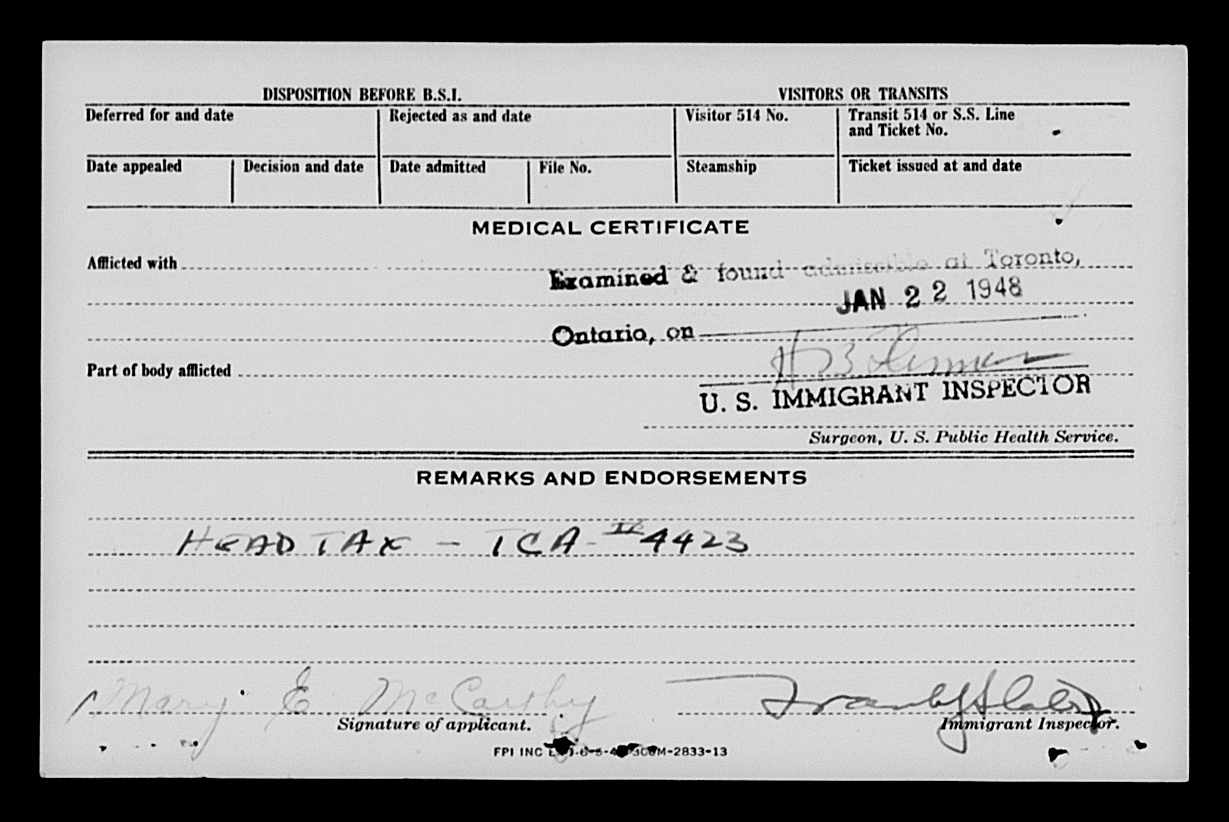 DISPOSITION BEFORE B.S.I.
VISITORS OR TRANSITS
Deferred for and date
Rejected as and date
Visitor 514 No.
Transit 514 or S.S. Line
and Ticket No.
Date appealed
Decision and date
Date admitted
File No.
Steamship
Ticket issued at and date
MEDICAL CERTIFICATE
Afflicted with
Examined & found admissible at Toronto,
JAN 22 1948
Ontario, on
Part of body afflicted
H B
U. S. IMMIGRANT INSPECTOR
Surgeon, U. S. Public Health Service.
REMARKS AND ENDORSEMENTS
HEAD TAX - TCA- 4423
Mary E McCarthy
Frank
Signature of applicant.
Immigrant Inspector.
FPI INC M-2833-13